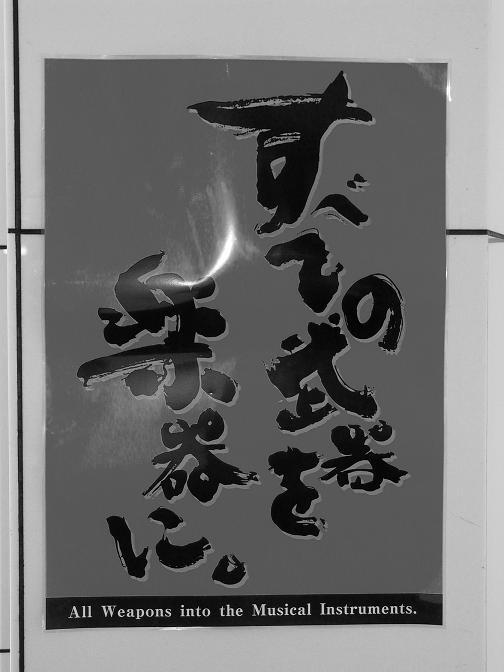 すべての武器を
楽器に。
All Weapons into the Musical Instruments.